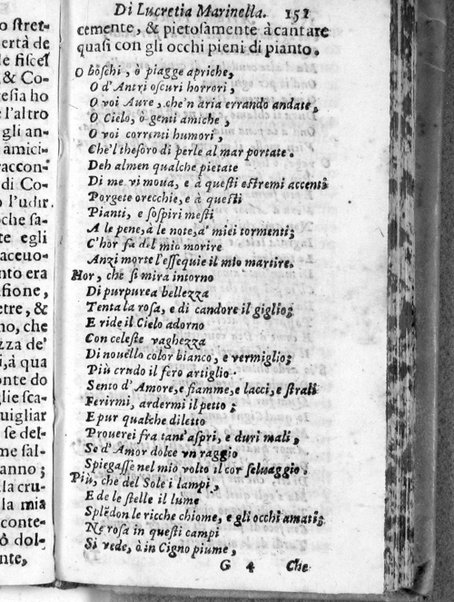 Di Lucretia Marinella. 152
cemente, & pietosamente à cantare
quasi con gli occhi pieni di pianto.
O boschi, ò piagge apriche,
O d'Antri oscuri horrori,
O voi Aure, che'n aria errando andate,
O Cielo, ò genti amiche,
O voi correnti humori,
Che'l thesoro di perle al mar portate.
Deh almen qualche pietate
Di me vi moua, e à questi estremi accenti
Porgete orecchie, e à questi
Pianti, e sospiri mesti
A le pene, à le note, a' miei tormenti;
C'hor fia del mio morire
Anzi morte l'essequie il mio martire.
Hor, che si mira intorno
Di purpurea bellezza
Tenta la rosa, e di candore il giglio;
E ride il Cielo adorno
Con celeste vaghezza
Di nouello color bianco, e vermiglio;
Più crudo il fero artiglio
Sento d'Amore, e fiamme, e lacci, e strali
Ferirmi, ardermi il petto;
E pur qualche diletto
Prouerei fra tant'aspri, e duri mali,
Se d'Amor dolce vn raggio
Spiegasse nel mio volto il cor seluaggio.
Più, che del Sole i lampi,
E de le stelle il lume
Splēdon le ricche chiome, e gli occhi amati;
Ne rosa in questi campi
Si vede, ò in Cigno piume,
G 4 Che
o stret-
ertà de
le fiscel
, & Co-
esia ho
e l'altro
gli an-
amici-
raccon-
di Co-
o l'udir
oche sa-
te egli
aceuo-
nto era
fione,
etre, &
no, che
zza de'
i, à qua
onte do
glie sca-
uigliar
se del-
me sal-
anno;
la cru-
la mia
conte-
ò dol-
nte,